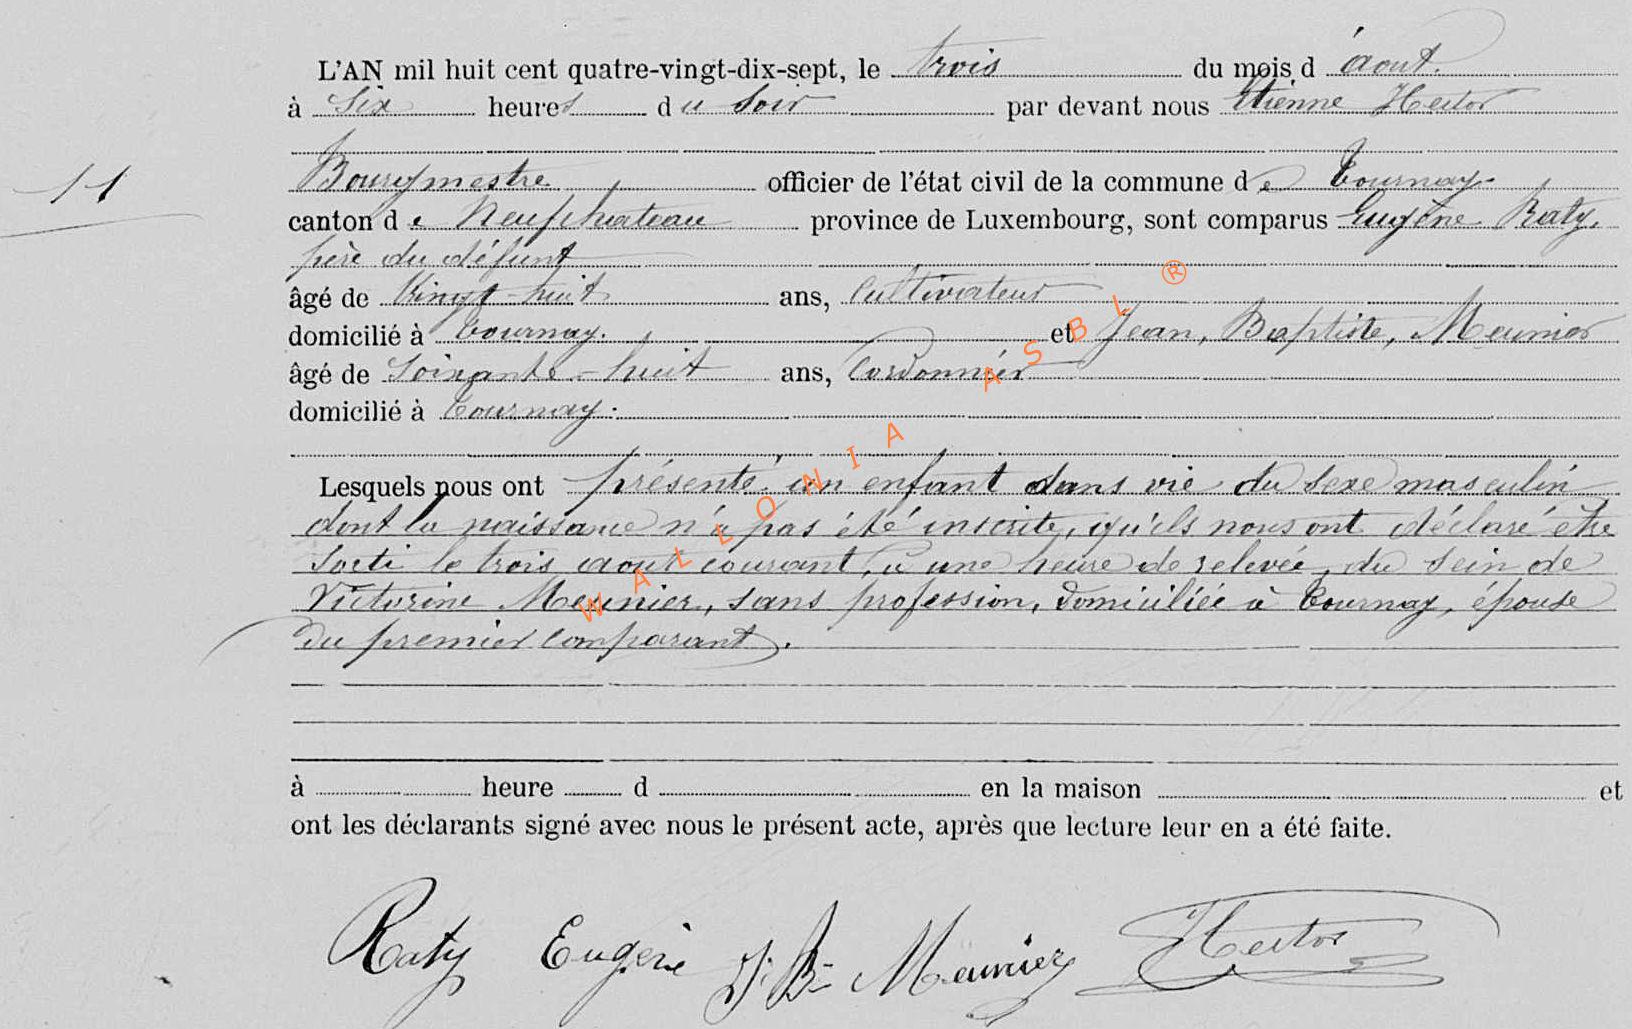 L'AN mil huit cent quatre-vingt-dix-sept, le trois du mois d'aout.
à six heures du soir par devant nous Etienne Hector
Bourgmestre officier de l'état civil de la commune de Tournay.
11
canton de Neufchateau province de Luxembourg, sont comparus Eugène Raty,
père du défunt
âgé de Vingt-huit ans, Cultivateur
domicilié à Tournay. et Jean, Baptiste, Meunier
âgé de Soixante-huit ans, Cordonnier
domicilié à Tournay.
Lesquels nous ont présenté un enfant sans vie du sexe masculin
dont la naissance n'a pas été inscrite, qu'ils nous ont déclaré être
sorti le trois aout courant, à une heure de relevée, du sein de
Victorine Meunier, sans profession, domiciliée à Tournay, épouse
du premier comparant.
à heure d en la maison et
ont les déclarants signé avec nous le présent acte, après que lecture leur en a été faite.
Raty Eugène J. Bte Meunier Hector
WALLONIA ASBL ®